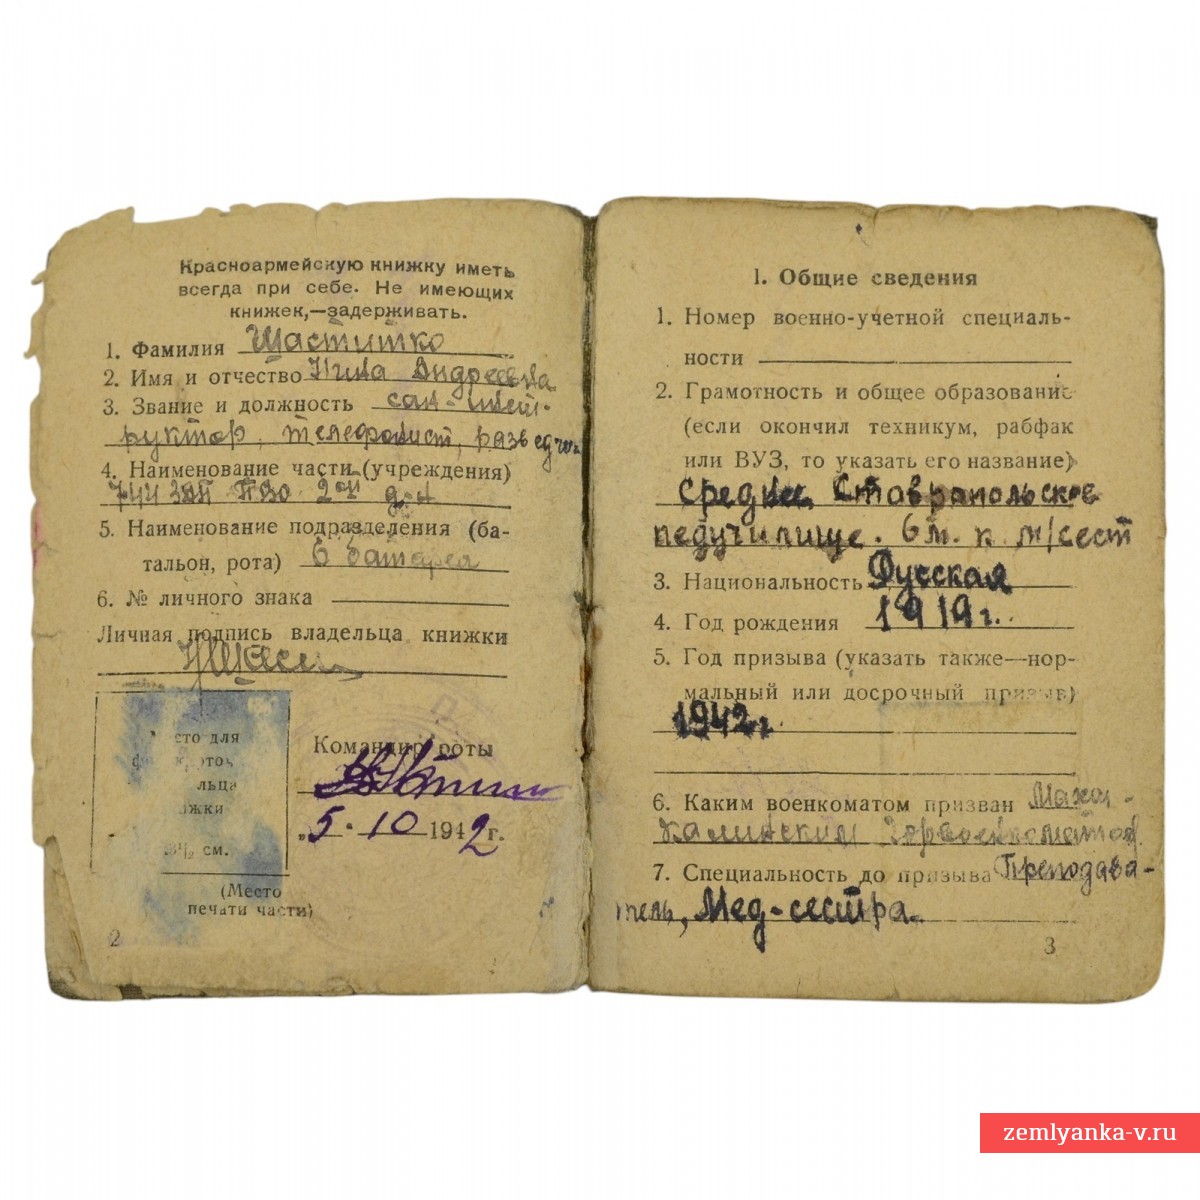 Красноармейскую книжку иметь
всегда при себе. Не имеющих
книжек,—задерживать.
1. Фамилия Шаститко
2. Имя и отчество Нина Андреевна
3. Звание и должность сан-инст-
руктор, телефонист, разведчик
4. Наименование части (учреждения)
744 ЗАП ПВО
5. Наименование подразделения (ба-
тальон, рота) 6 батарея
6. № личного знака
Личная подпись владельца книжки
Командир роты
„5. 10 1942 г.
(Место
печати части)
2
I. Общие сведения
1. Номер военно-учетной специаль-
ности
2. Грамотность и общее образование
(если окончил техникум, рабфак
или ВУЗ, то указать его название)
Среднее Ставропольское
педучилище. 6 м. к м/сест
3. Национальность Русская
4. Год рождения 1919 г.
5. Год призыва (указать также—нор-
мальный или досрочный призыв)
1942 г.
6. Каким военкоматом призван Махач-
калинским Горвоенкоматом
7. Специальность до призыва Преподава-
тель, Мед-сестра.
3
zemlyanka-v.ru